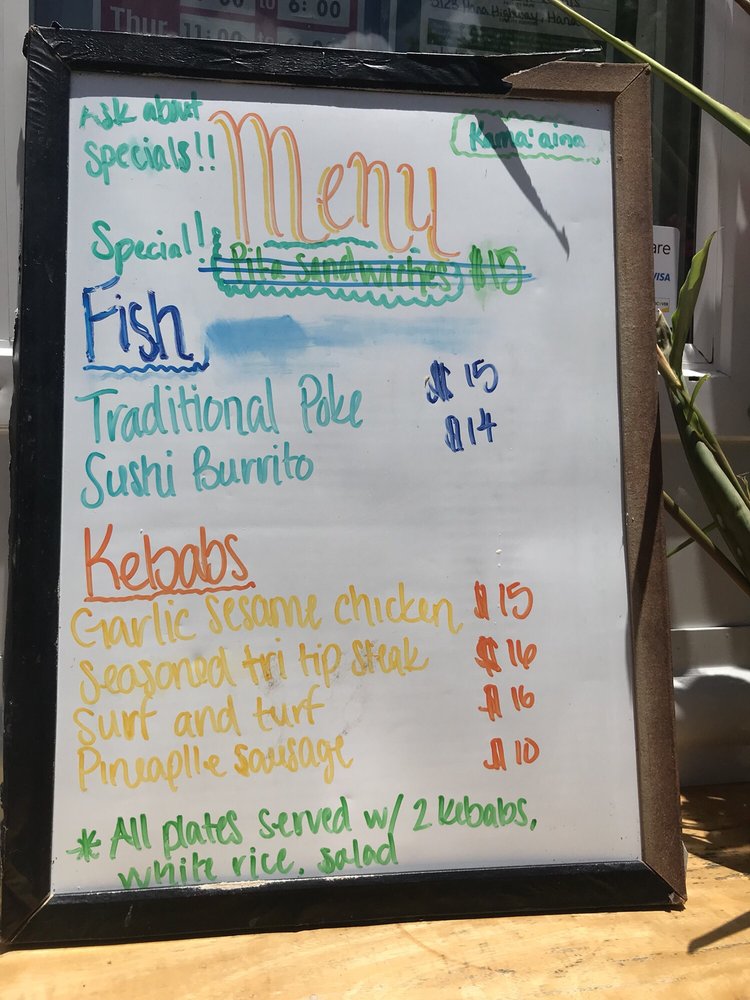 Thur 11:00 to 6:00
5123 Hana Highway, Hana
Ask about
specials!!
Menu
Kama'aina
Special!
Pita Sandwiches $15
VISA
Fish
Traditional Poke $15
Sushi Burrito $14
Kebabs
Garlic sesame chicken $15
Seasoned tri tip steak $16
Surf and turf $16
Pineaplle sausage $10
* All plates served w/ 2 kebabs,
white rice, salad